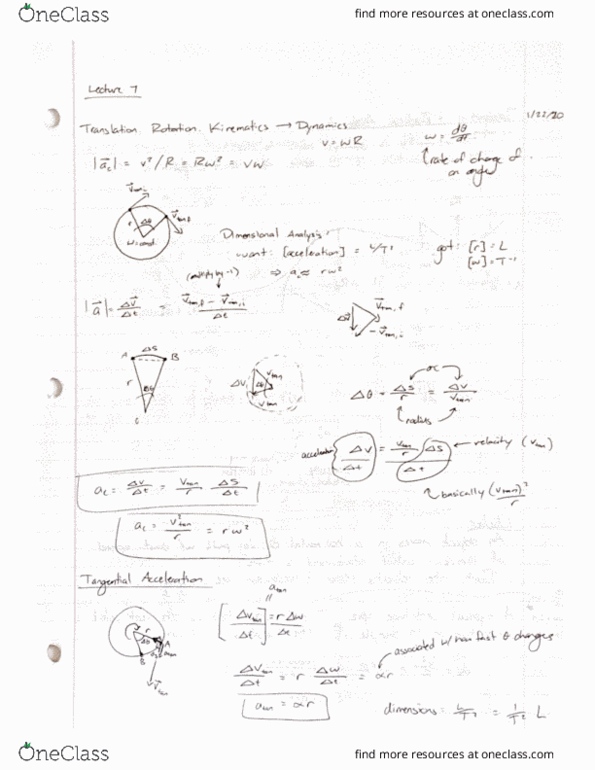 OneClass
find more resources at oneclass.com
Lecture 7
1/22/20
Translation, Rotation, Kinematics → Dynamics
v = ωR
ω = dθ/dt
|a⃗c| = v²/R = Rω² = vω
rate of change of an angle
v⃗tan,i
v⃗tan,f
r
Δθ
ω = const
Dimensional Analysis:
want: [acceleration] = L/T²
got: [r] = L
[ω] = T⁻¹
(multiply by -1)
⇒ ac ≈ rω²
|a⃗| = Δv⃗/Δt = (v⃗tan,f - v⃗tan,i)/Δt
Δv⃗
v⃗tan,f
-v⃗tan,i
ΔS
A
B
r
Δθ
C
Δv
Δθ
vtan
vtan
arc
Δθ = Δs/r = Δv/vtan
radius
acceleration
Δv/Δt = vtan/r ΔS/Δt
velocity (vtan)
basically (vtan)²/r
ac = Δv/Δt = vtan/r ΔS/Δt
ac = v²tan/r = rω²
Tangential Acceleration
atan
[Δvtan/Δt] = rΔω/Δt
r
A
Δθ
B
atan
v⃗tan
associated w/ how fast θ changes
Δvtan/Δt = r Δω/Δt = αr
atan = αr
dimensions: L/T² = 1/T² L
OneClass
find more resources at oneclass.com